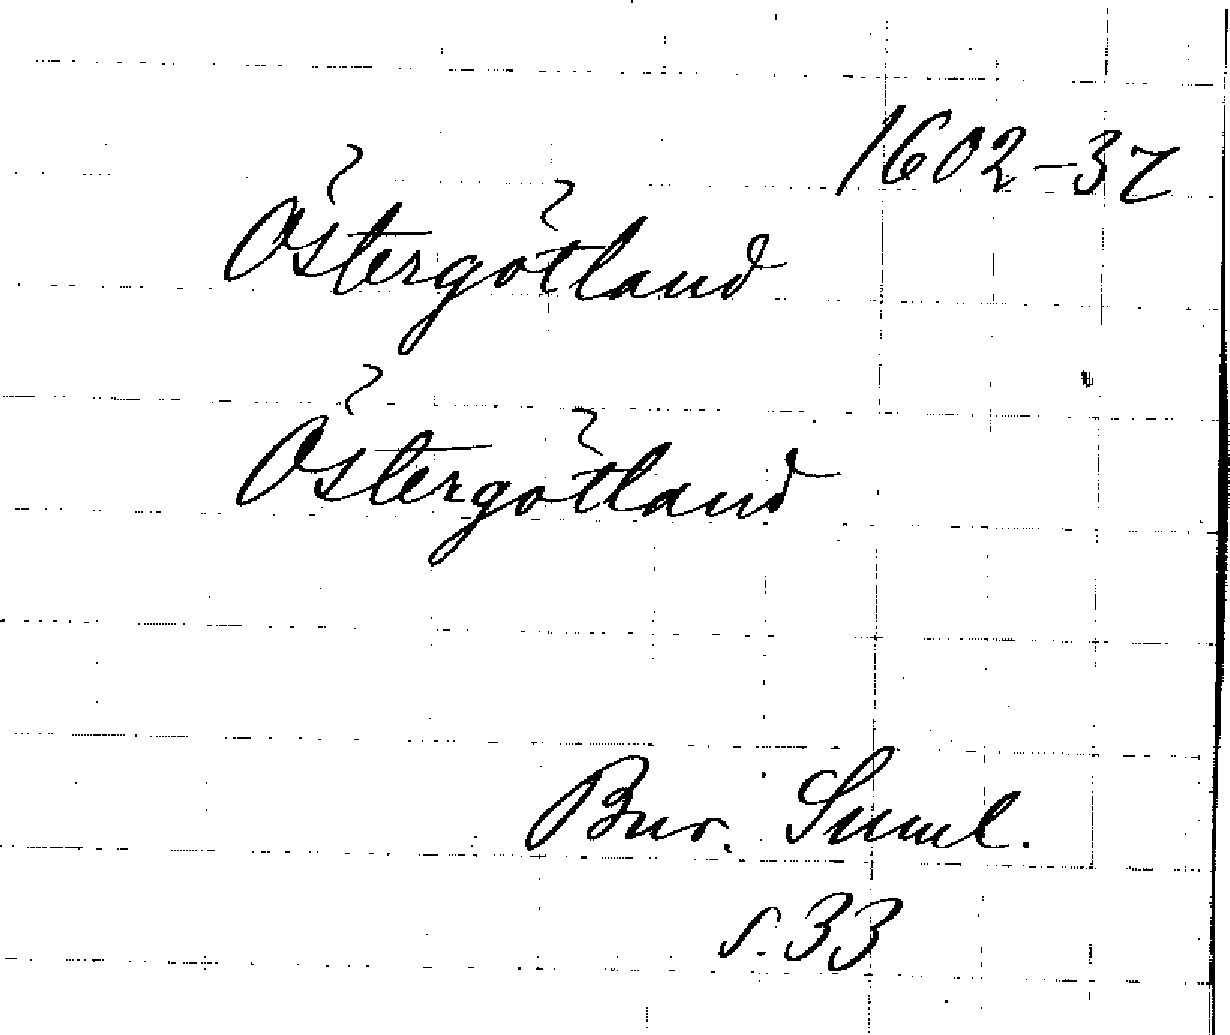 1602-37
Östergötland
Östergötland
Bur. Suml.
s. 33